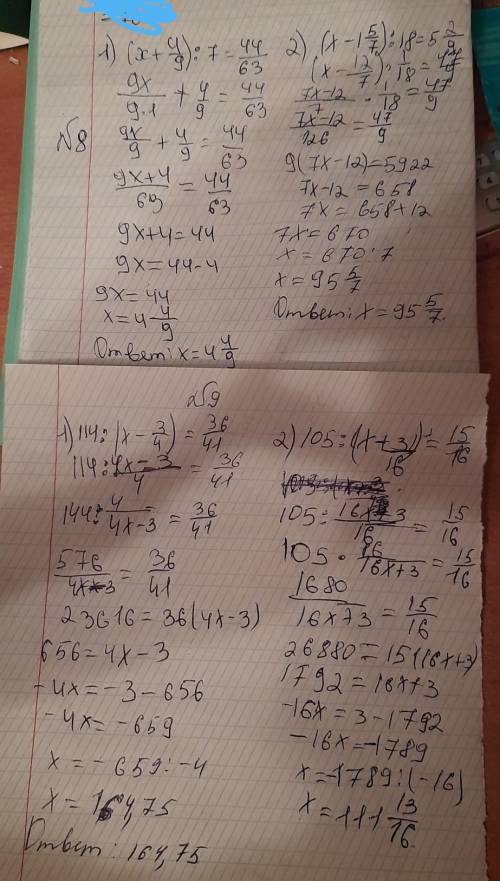 №8
1) (x + 4/9) : 7 = 44/63
9x/9·1 + 4/9 = 44/63
9x/9 + 4/9 = 44/63
9x+4/63 = 44/63
9x+4 = 44
9x = 44-4
9x = 44
x = 4 4/9
Ответ: x = 4 4/9
2) (x - 1 5/7) : 18 = 5 2/9
(x - 12/7) · 1/18 = 47/9
7x-12/7 · 1/18 = 47/9
7x-12/126 = 47/9
9(7x-12) = 5922
7x-12 = 658
7x = 658+12
7x = 670
x = 670:7
x = 95 5/7
Ответ: x = 95 5/7.
№9
1) 114 : (x - 3/4) = 36/41
114 : 4x-3/4 = 36/41
144 · 4/4x-3 = 36/41
576/4x-3 = 36/41
23616 = 36(4x-3)
656 = 4x-3
-4x = -3-656
-4x = -659
x = -659:-4
x = 164,75
Ответ: 164,75
2) 105 : (x + 3/16) = 15/16
105 : 16x+3/16 = 15/16
105 · 16/16x+3 = 15/16
1680/16x+3 = 15/16
26880 = 15(16x+3)
1792 = 16x+3
-16x = 3-1792
-16x = -1789
x = -1789:(-16)
x = 111 13/16.